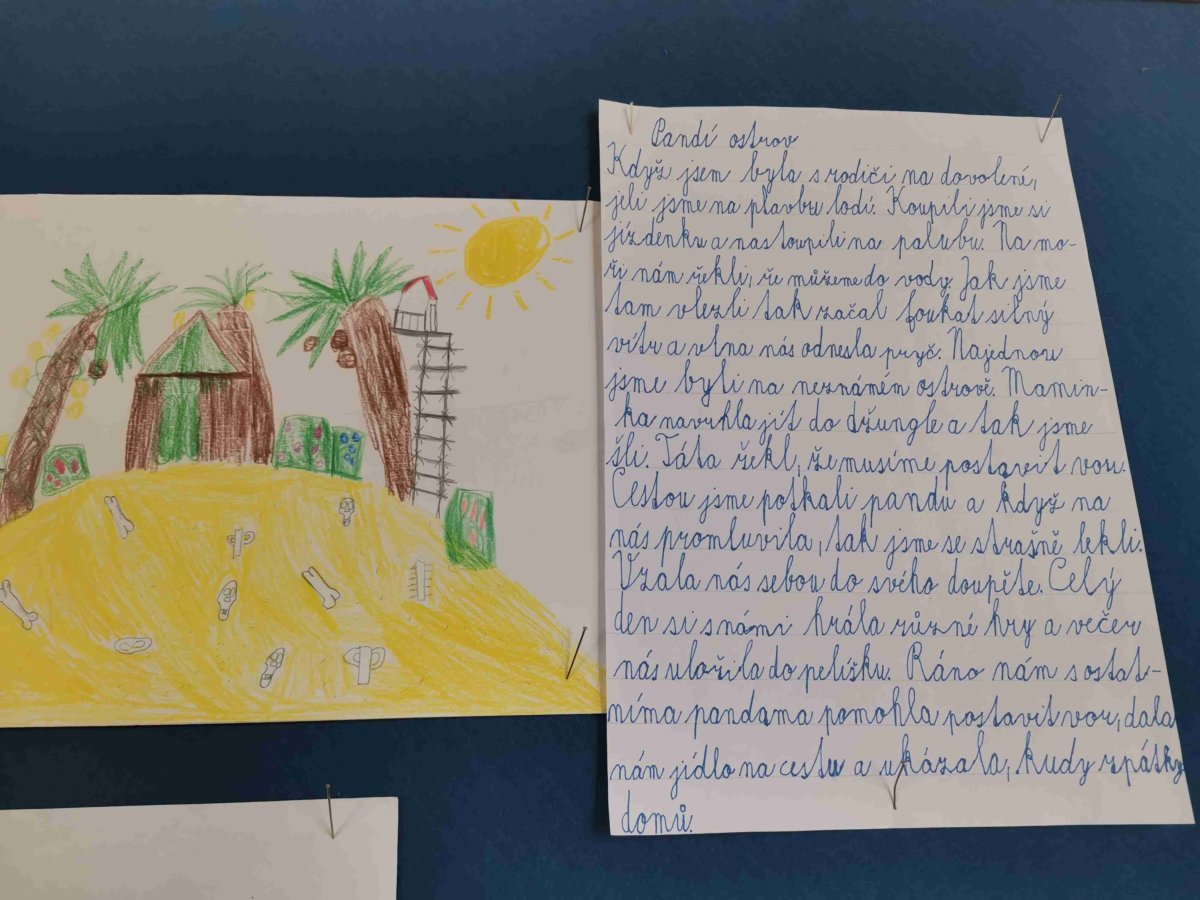 Pandí ostrov
Když jsem byla s rodiči na dovolené,
jeli jsme na plavbu lodí. Koupili jsme si
jízdenku a nastoupili na palubu. Na mo-
ři nám řekli, že můžeme do vody. Jak jsme
tam vlezli tak začal foukat silný
vítr a vlna nás odnesla pryč. Najednou
jsme byli na neznámém ostrově. Mamin-
ka navrhla jít do džungle a tak jsme
šli. Táta řekl, že musíme postavit vor.
Cestou jsme potkali pandu a když na
nás promluvila, tak jsme se strašně lekli.
Vzala nás sebou do svého doupěte. Celý
den si s námi hrála různé hry a večer
nás uložila do pelíšku. Ráno nám s ostat-
níma pandama pomohla postavit vor, dala
nám jídlo na cestu a ukázala, kudy zpátky
domů.